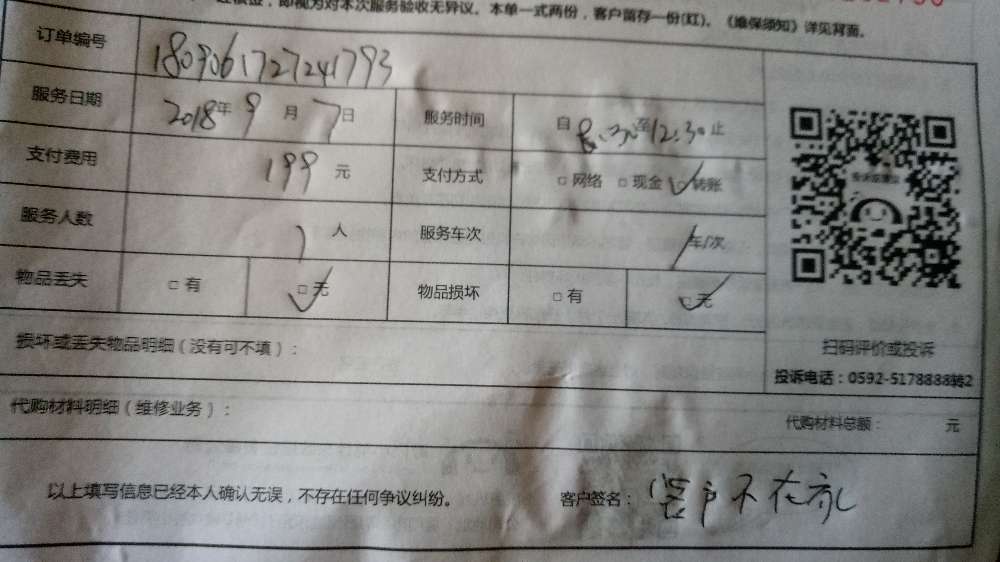 即视为对本次服务验收无异议。本单一式两份，客户留存一份(红)。《维保须知》详见背面。
订单编号 1809061727241793
服务日期 2018年 9 月 7日 服务时间 自 8.30至12.30止
支付费用 199 元 支付方式 □ 网络 □ 现金 □ 转账
服务人数 1 人 服务车次 / 车/次
物品丢失 □ 有 □ 无 物品损坏 □ 有 □ 无
扫码评价或投诉
投诉电话：0592-5178888转2
损坏或丢失物品明细（没有可不填）：
代购材料明细（维修业务）： 代购材料总额： 元
以上填写信息已经本人确认无误，不存在任何争议纠纷。 客户签名： 客户不在家